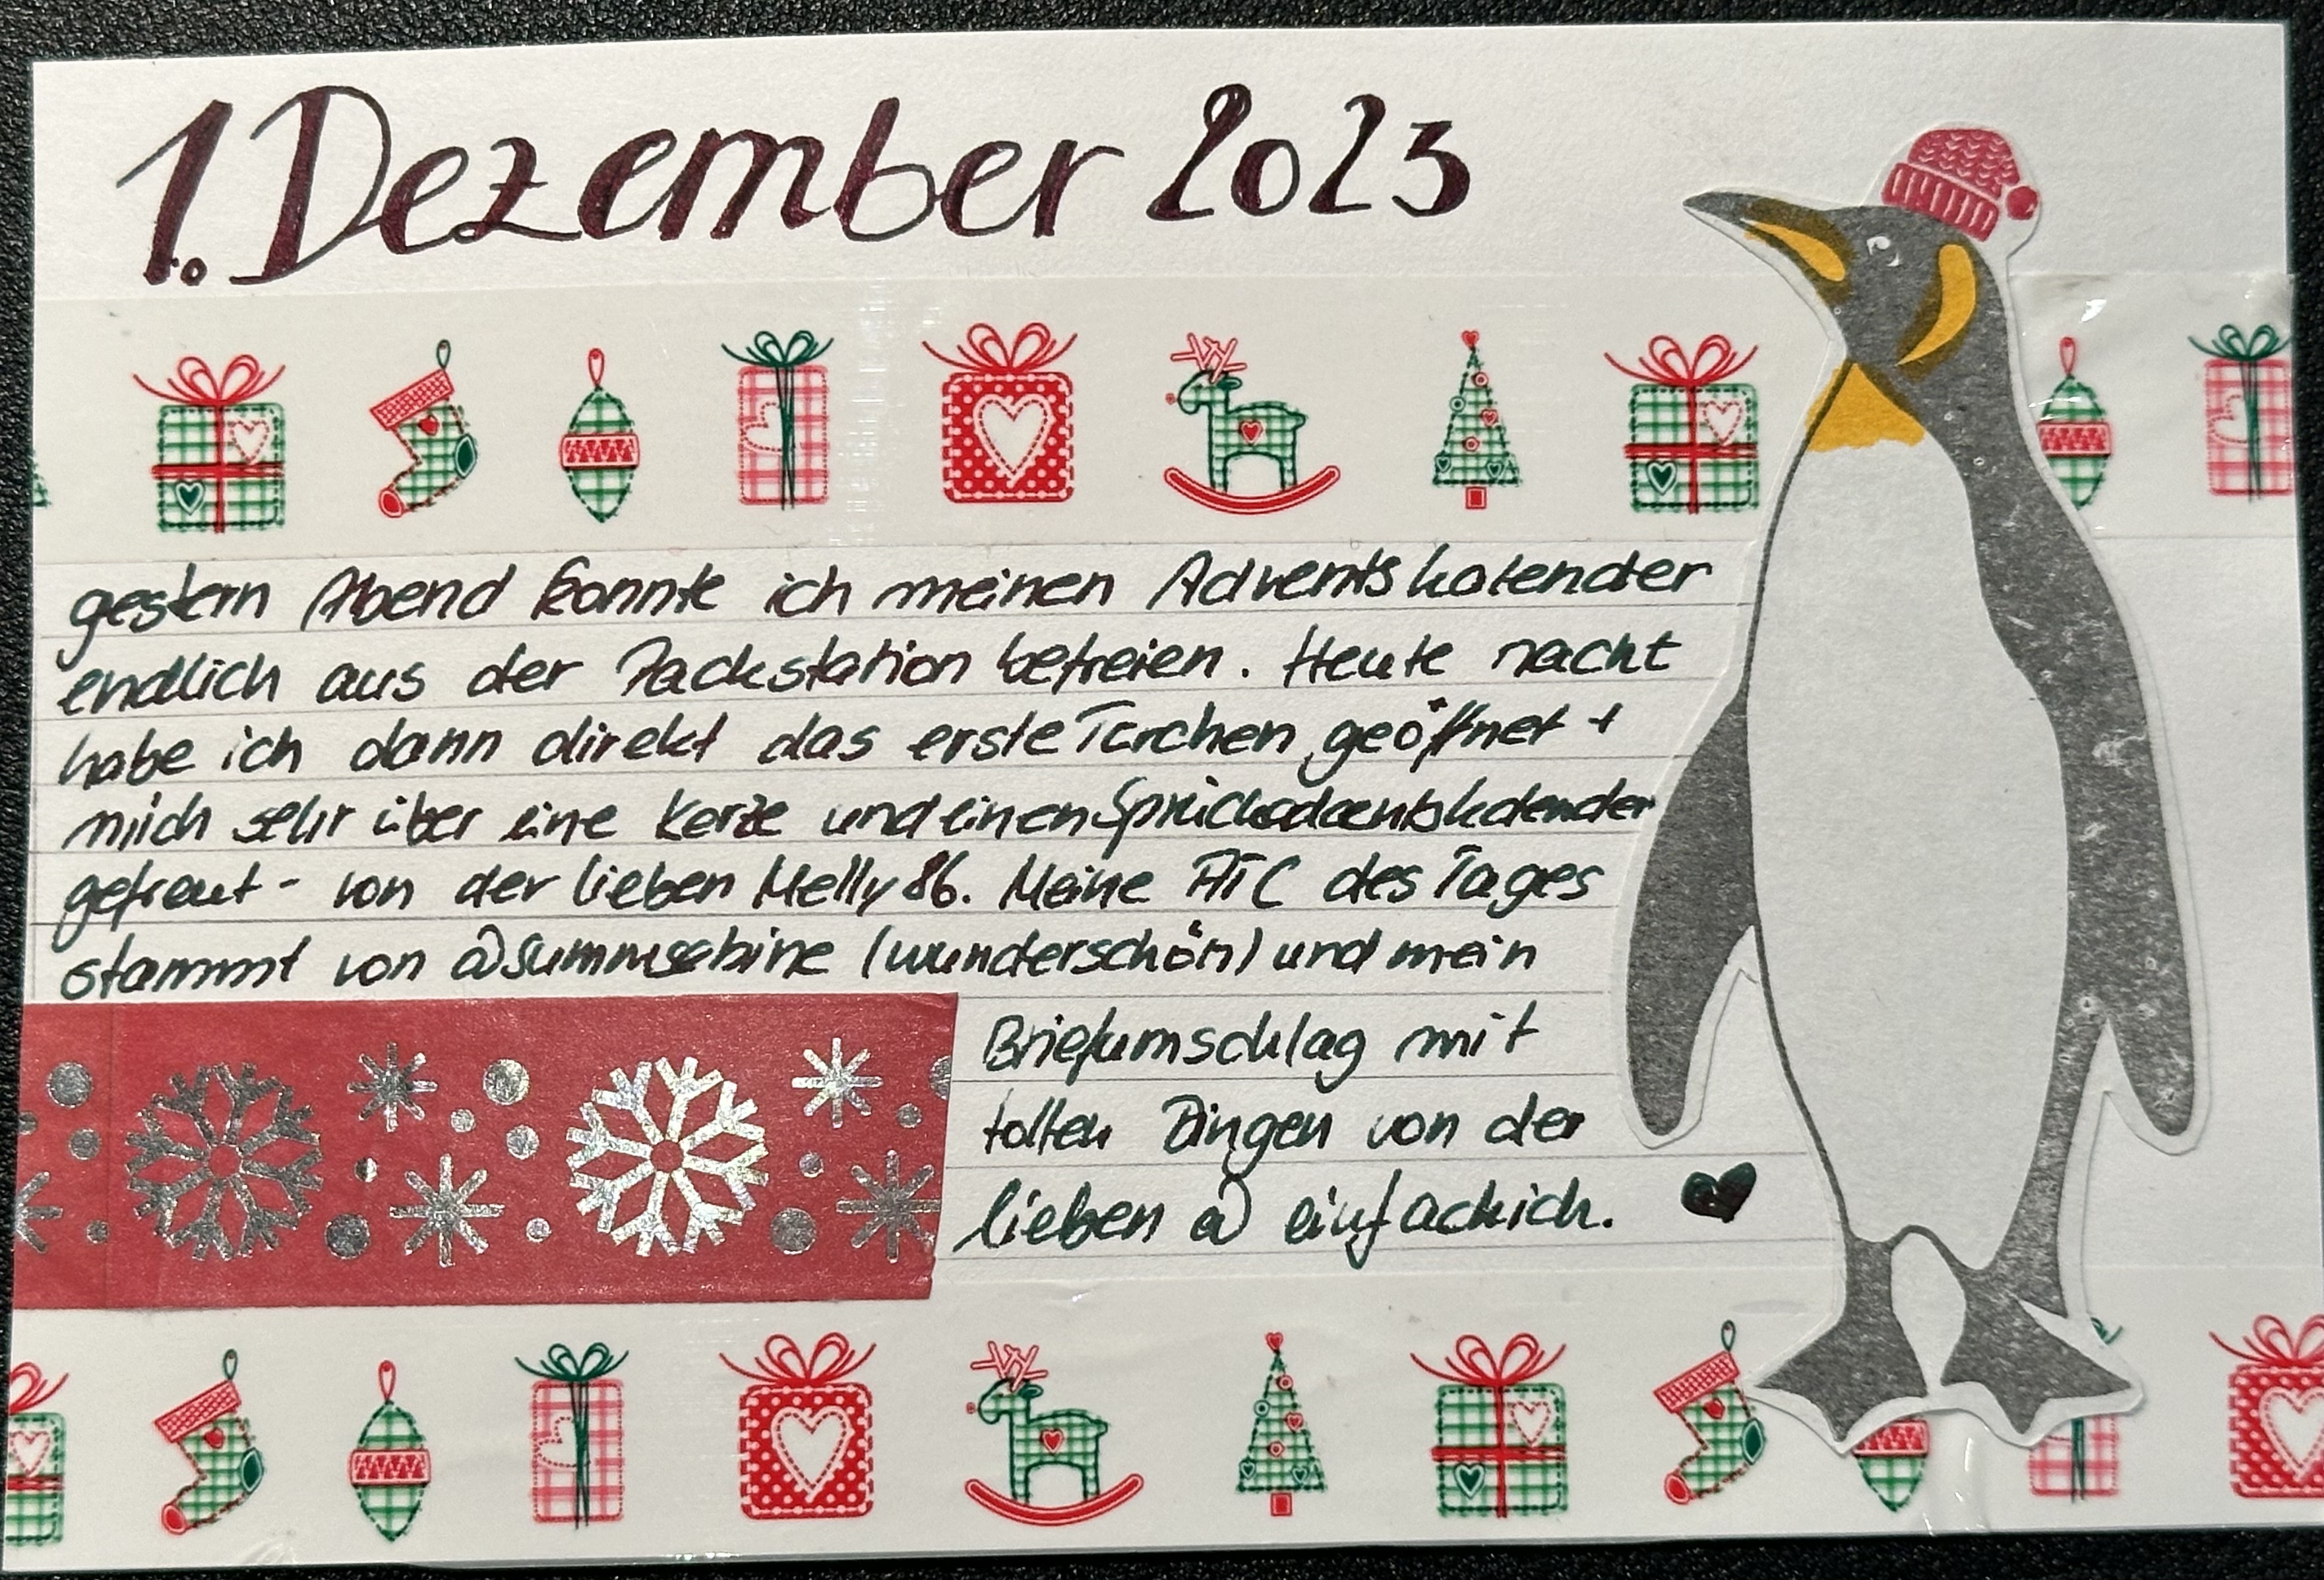 1. Dezember 2023
gestern Abend konnte ich meinen Adventskalender
endlich aus der Packstation befreien. Heute nacht
habe ich dann direkt das erste Türchen geöffnet +
mich sehr über eine Kerze und einen
gefreut - von der lieben Melly86. Meine ATC des Tages
stammt von @summsebine (wunderschön) und mein
Briefumschlag mit
tollen Dingen von der
lieben @einfachich.